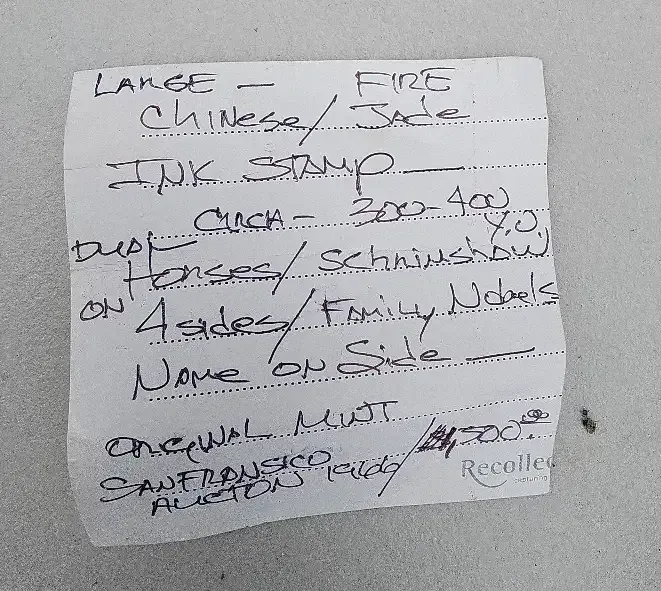 LARGE — FIRE
Chinese/Jade
INK STAMP —
CIRCA - 300-400
Y.O.
DUAL
Horses/
ON
4 sides/Family Nobels
Name on Side —
ORIGINAL MINT
SANFRANSICO
AUCTION /
,500.00
Recollec